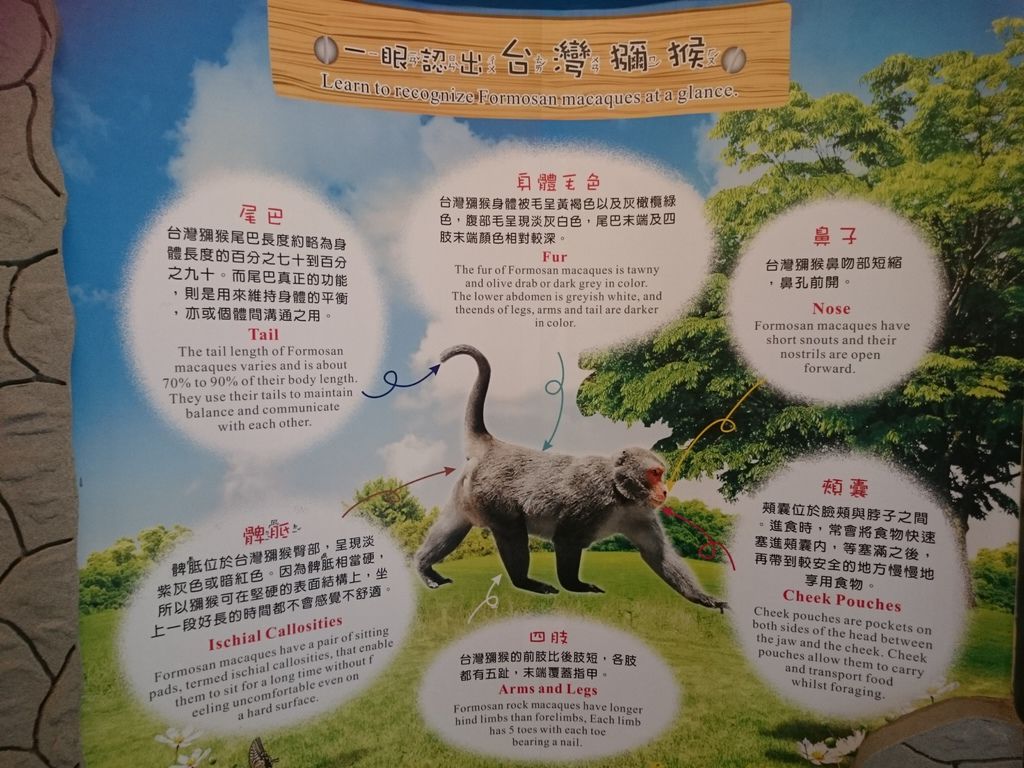 一眼認出台灣獼猴
Learn to recognize Formosan macaques at a glance.
尾巴
台灣獼猴尾巴長度約略為身
體長度的百分之七十到百分
之九十。而尾巴真正的功能
，則是用來維持身體的平衡
，亦或個體間溝通之用。
Tail
The tail length of Formosan
macaques varies and is about
70% to 90% of their body length.
They use their tails to maintain
balance and communicate
with each other.
身體毛色
台灣獼猴身體被毛呈黃褐色以及灰橄欖綠
色，腹部毛呈現淡灰白色，尾巴末端及四
肢末端顏色相對較深。
Fur
The fur of Formosan macaques is tawny
and olive drab or dark grey in color.
The lower abdomen is greyish white, and
theends of legs, arms and tail are darker
in color.
鼻子
台灣獼猴鼻吻部短縮
，鼻孔前開。
Nose
Formosan macaques have
short snouts and their
nostrils are open
forward.
髀胝
髀胝位於台灣獼猴臀部，呈現淡
紫灰色或暗紅色。因為髀胝相當硬，
所以獼猴可在堅硬的表面結構上，坐
上一段好長的時間都不會感覺不舒適。
Ischial Callosities
Formosan macaques have a pair of sitting
pads, termed ischial callosities, that enable
them to sit for a long time without f
eeling uncomfortable even on
a hard surface.
四肢
台灣獼猴的前肢比後肢短，各肢
都有五趾，末端覆蓋指甲。
Arms and Legs
Formosan rock macaques have longer
hind limbs than forelimbs, Each limb
has 5 toes with each toe
bearing a nail.
頰囊
頰囊位於臉頰與脖子之間
。進食時，常會將食物快速
塞進頰囊內，等塞滿之後，
再帶到較安全的地方慢慢地
享用食物。
Cheek Pouches
Cheek pouches are pockets on
both sides of the head between
the jaw and the cheek. Cheek
pouches allow them to carry
and transport food
whilst foraging.